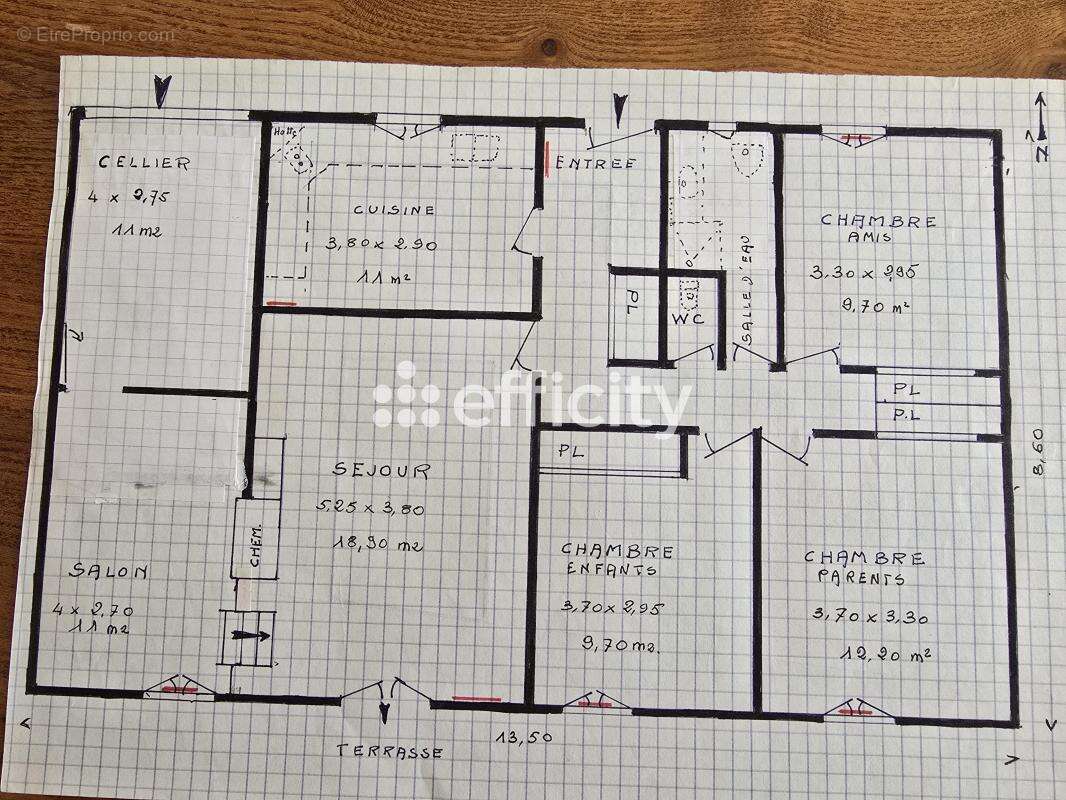 © EtreProprio.com
CELLIER
4 x 2,75
11 m2
Hotte
CUISINE
3,80 x 2,90
11 m²
ENTREE
PL
WC
SALLE D'EAU
CHAMBRE
AMIS
3.30 x 2,95
9,70 m²
N
PL
P.L
8,60
efficity
SEJOUR
5,25 x 3,80
18,90 m2
CHEM.
SALON
4 x 2,70
11 m2
PL
CHAMBRE
ENFANTS
3,70 x 2,95
9,70 m2.
CHAMBRE
PARENTS
3,70 x 3,30
12,20 m²
TERRASSE
13,50